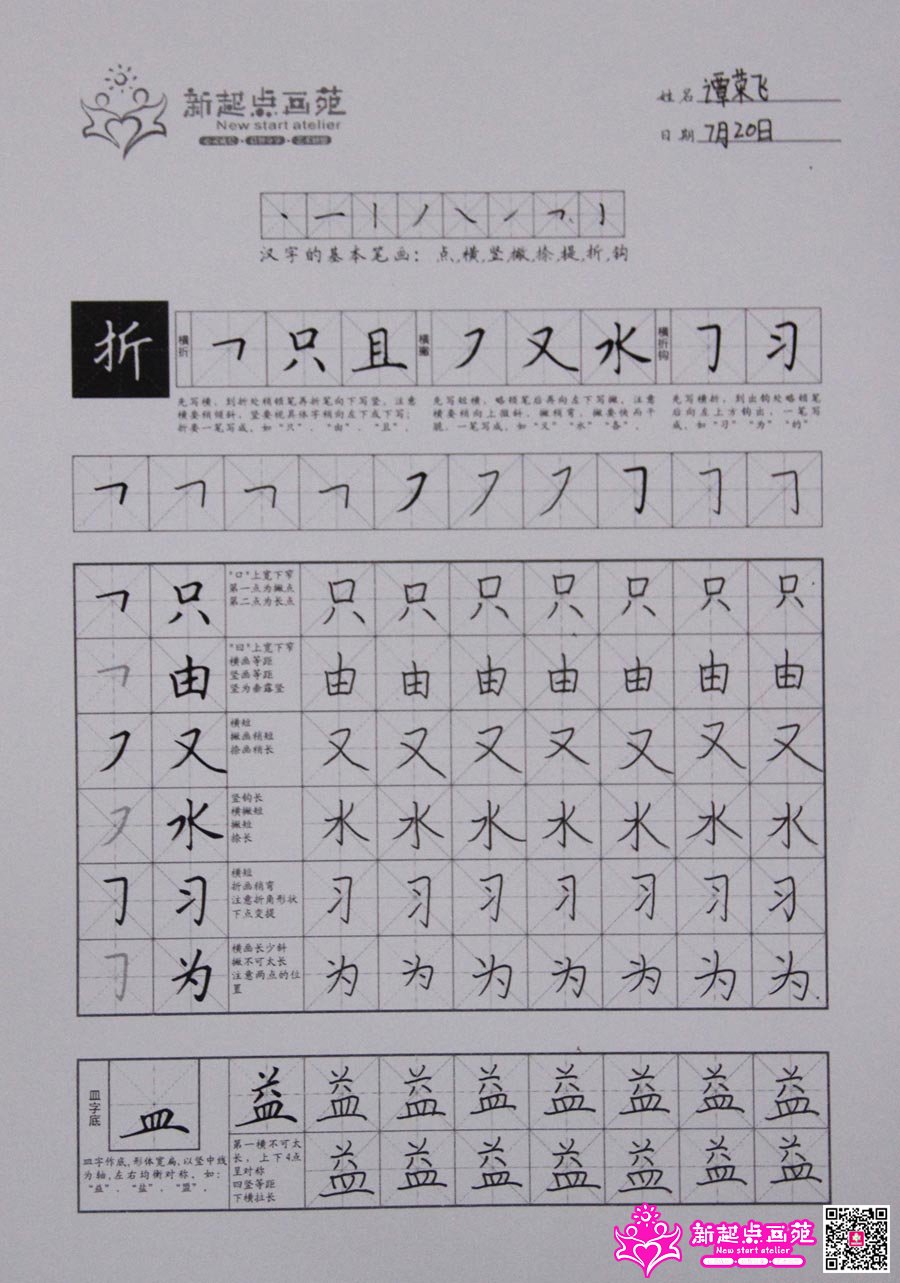 新起点画苑
New start atelier
姓名 谭荣飞
日期 7月20日
汉字的基本笔画：点,横,竖,撇,捺,提,折,钩
折 横折 ㇕ 只 且 横撇 ㇇ 又 水 横折钩 ㇆ 习
先写横，到折处稍顿笔再折笔向下写竖，注意
横要稍倾斜，竖要视具体字稍向左下或下写；
折要一笔写成，如“只”，“由”，“且”，
先写短横，略顿笔后再向左下写撇，注意
横要稍向上微斜，撇稍弯，撇要快而干
脆，一笔写成，如“又”“水”“各”，
先写横折，到出钩处略顿笔
后向左上方钩出，一笔写
成，如“习”“为”“的”
㇕ ㇕ ㇕ ㇕ ㇇ ㇇ ㇇ ㇆ ㇆ ㇆
㇕ 只 只 只 只 只 只 只 只
“口”上宽下窄
第一点为撇点
第二点为长点
㇕ 由 由 由 由 由 由 由 由
“曰”上宽下窄
横画等距
竖画等距
竖为垂露竖
㇇ 又 又 又 又 又 又 又 又
横短
撇画稍短
捺画稍长
㇇ 水 水 水 水 水 水 水 水
竖钩长
横撇短
撇短
捺长
㇆ 习 习 习 习 习 习 习 习
横短
折画稍弯
注意折角形状
下点变提
㇆ 为 为 为 为 为 为 为 为
横画长少斜
撇不可太长
注意两点的位
置
皿字底 皿 益 益 益 益 益 益 益 益
皿字作底，形体宽扁，以竖中线
为轴，左右均衡对称，如：
“益”，“盐”，“盟”，
第一横不可太
长，上下4点
呈对称
四竖等距
下横拉长
益 益 益 益 益 益 益
新起点画苑
New start atelier